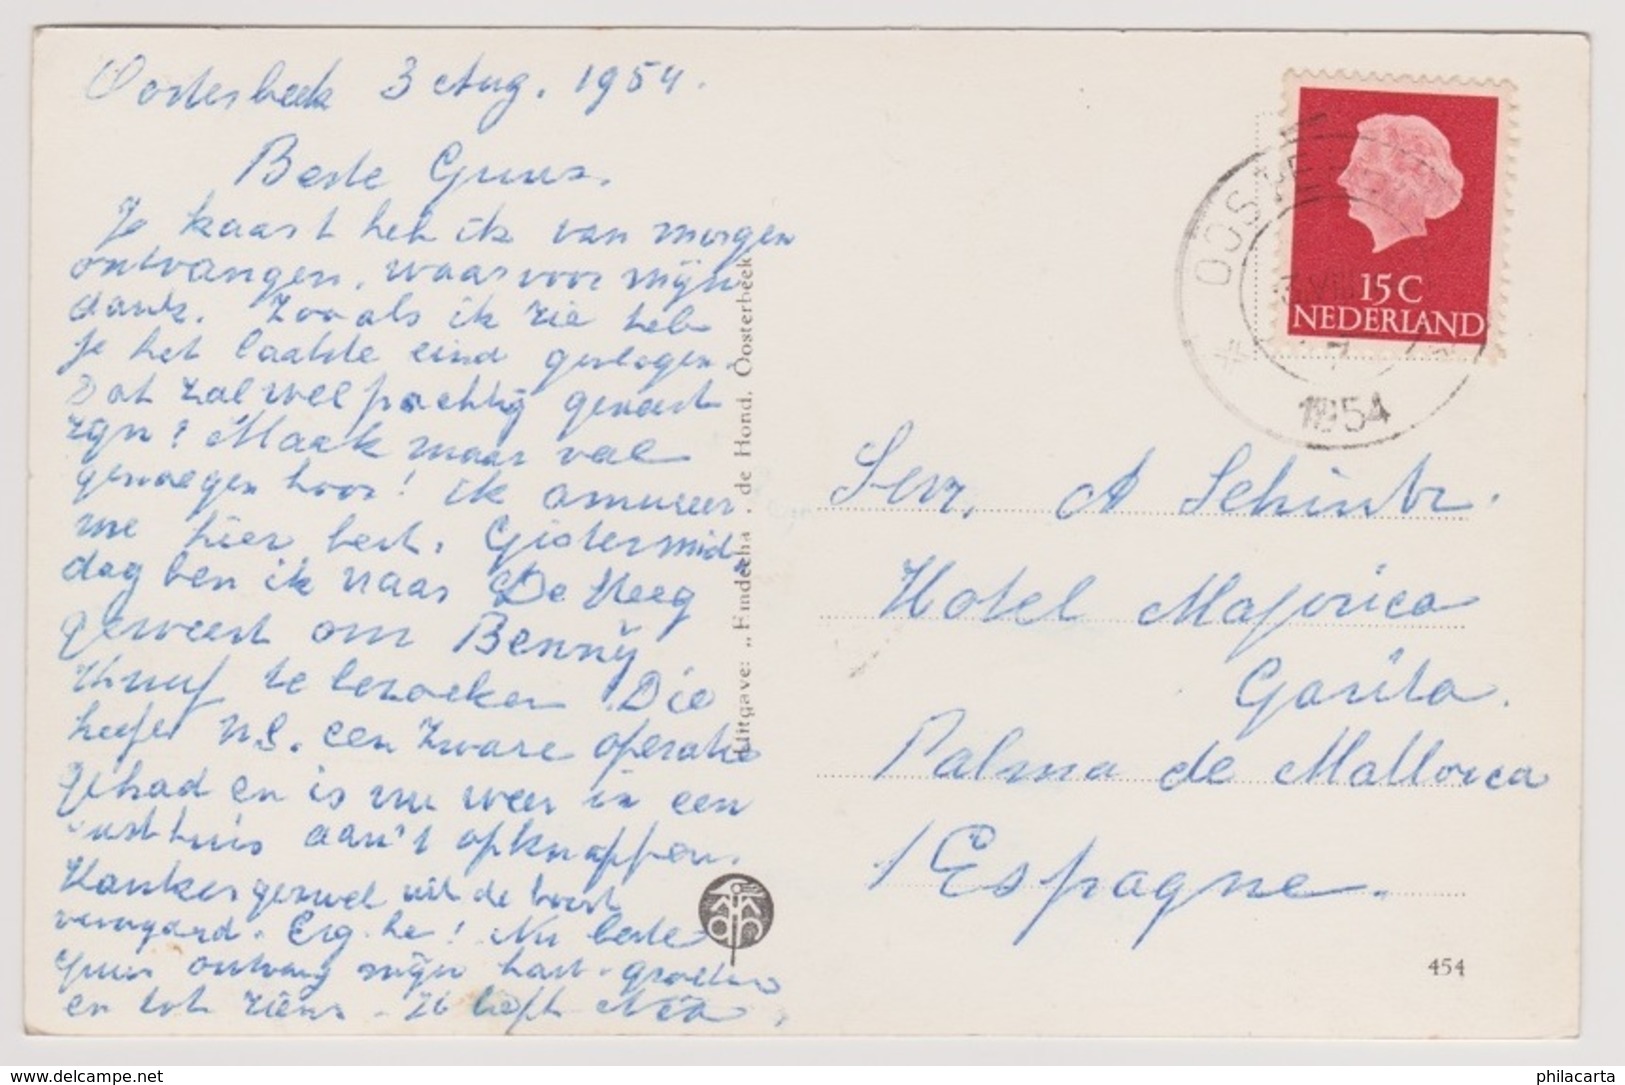 Oosterbeek 3 Aug. 1954.
Beste Guus.
Je kaart heb ik van morgen
ontvangen, waarvoor mijn
dank. Zooals ik zie heb
je het laatste eind gevlogen.
Dat zal wel prachtig geweest
zijn! Maak maar veel
genoegen hoor! ik amuseer
me hier best. Gistermid-
dag ben ik naar De Steeg
geweest om Benny
te bezoeken Die
heeft n.l. een zware operatie
gehad en is nu weer in een
rusthuis aan't opknappen.
Kankergezwel uit de borst
verwijderd. Erg he! Nu beste
Guus ontvang mijn hart. groeten
en tot ziens -
Uitgave: „Eindecha", de Hond, Oosterbeek
454
NEDERLAND
15 C
OOSTE
VIII
1954
A Schintz.
Hotel Majorica
Palma de Mallorca
Espagne.
philacarta.com/DE
philacarta